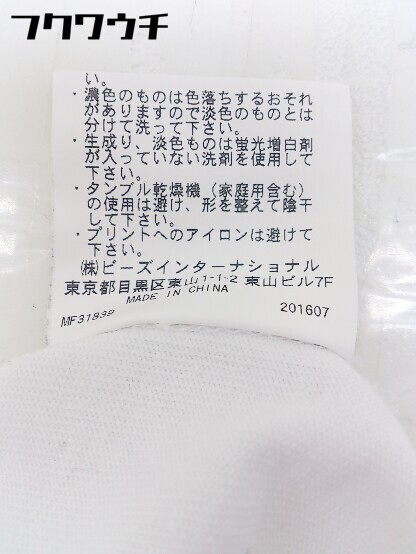 フクワウチ
い。
・濃色のものは色落ちするおそれ
がありますので淡色のものとは
分けて洗って下さい。
・生成り、淡色ものは蛍光増白剤
が入っていない洗剤を使用して
下さい。
・タンブル乾燥機（家庭用含む）
の使用は避け、形を整えて陰干
して下さい。
・プリントへのアイロンは避けて
下さい。
㈱ビーズインターナショナル
東京都目黒区東山1-1-2 東山ビル7F
MADE IN CHINA
MF31839
201607